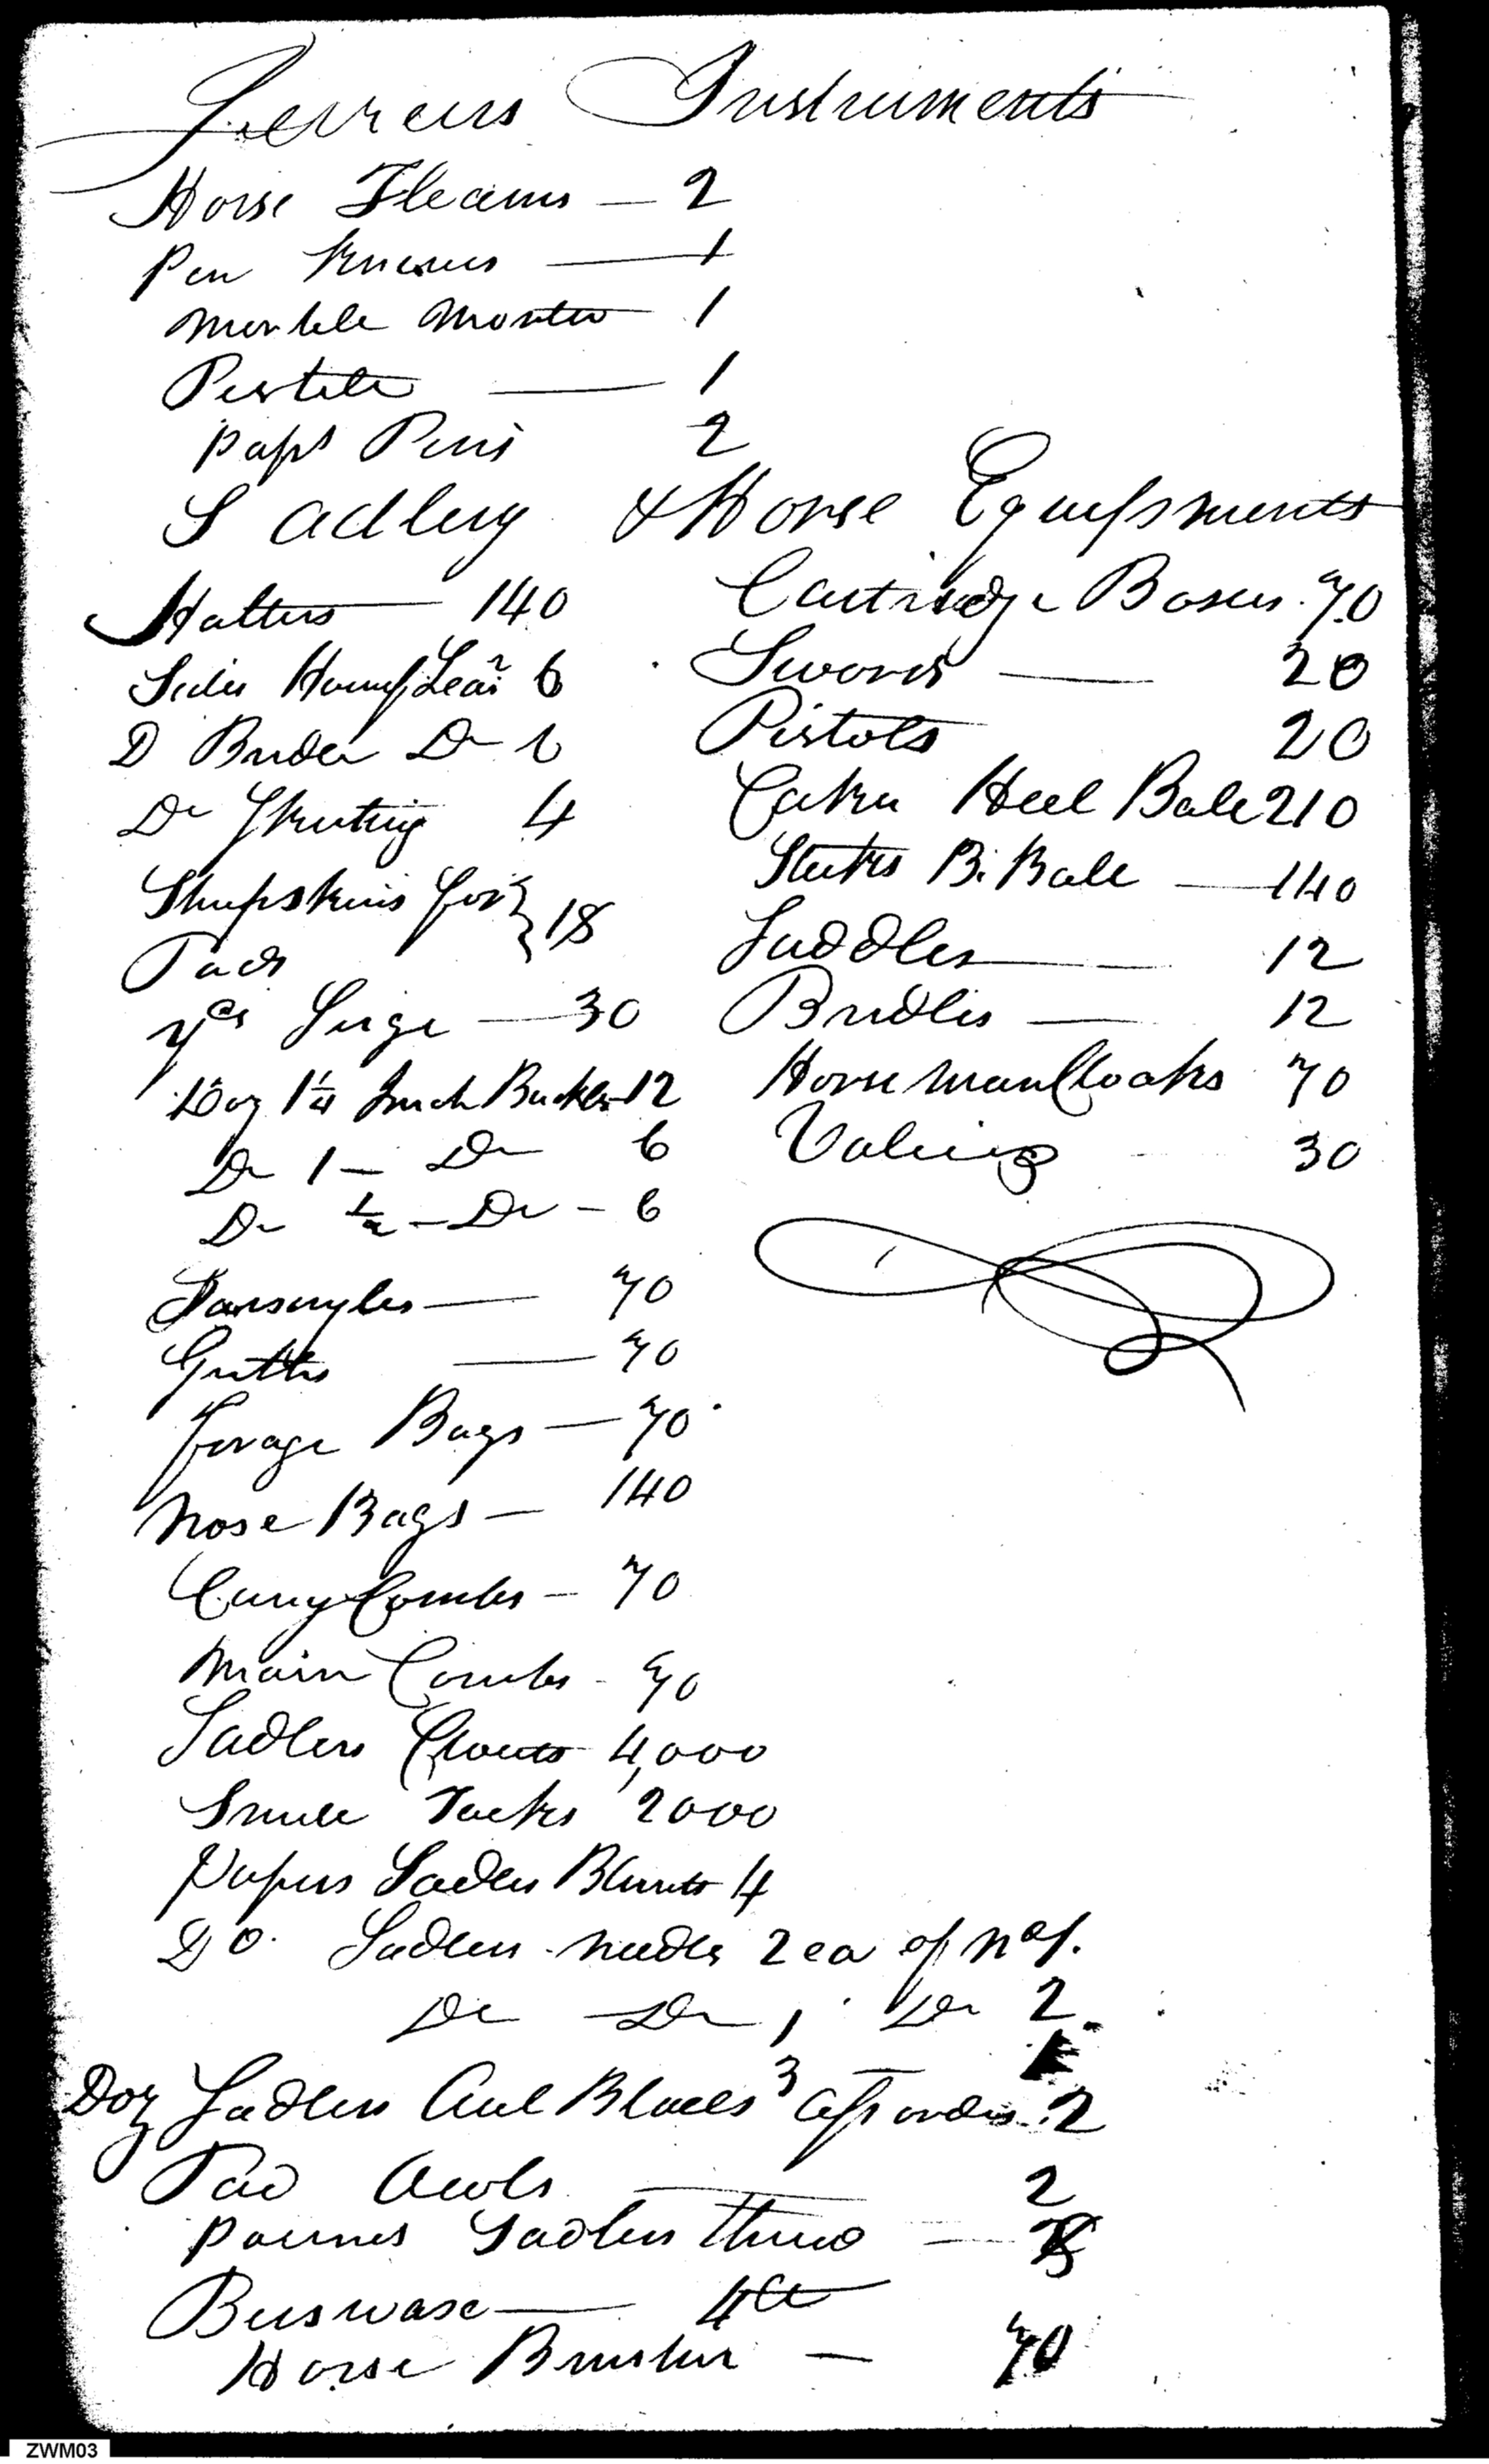 Instruments
Horse Fleams — 2
Pen Knives — 1
Morter 1
1
Paps Pins 2
Sadlery & Horse Equipments
Halters 140
Sides Leař 6
D Bridle Do 6
Do Skirting 4
Shepskins for } 18
Pads
yds Serge — 30
Doz 1¼ Inch Buckles 12
Do 1 — Do 6
Do ½ — Do — 6
Sursingles — 70
Girths — 70
forage Bags — 70
Nose Bags — 140
Curry Combs — 70
Main Combs - 70
Sadlers Clouts 4,000
Small Tacks 2000
Papers Sadlers 4
Do. Sadlers needles 2 ea of No 1.
Do Do 1 Do 2
3
Doz Sadlers Aul Blaids assorders 2
Pad Awls 2
Pounds Sadlers thread
Beeswase — 4 lb
Horse Brushes — 70
Cartridge Boxes 70
Swords — 20
Pistols 20
Cakes Heel Bale 210
Sticks B. Ball — 140
Saddles — 12
Bridles — 12
Horseman Cloaks 70
Valines 30
ZWM03